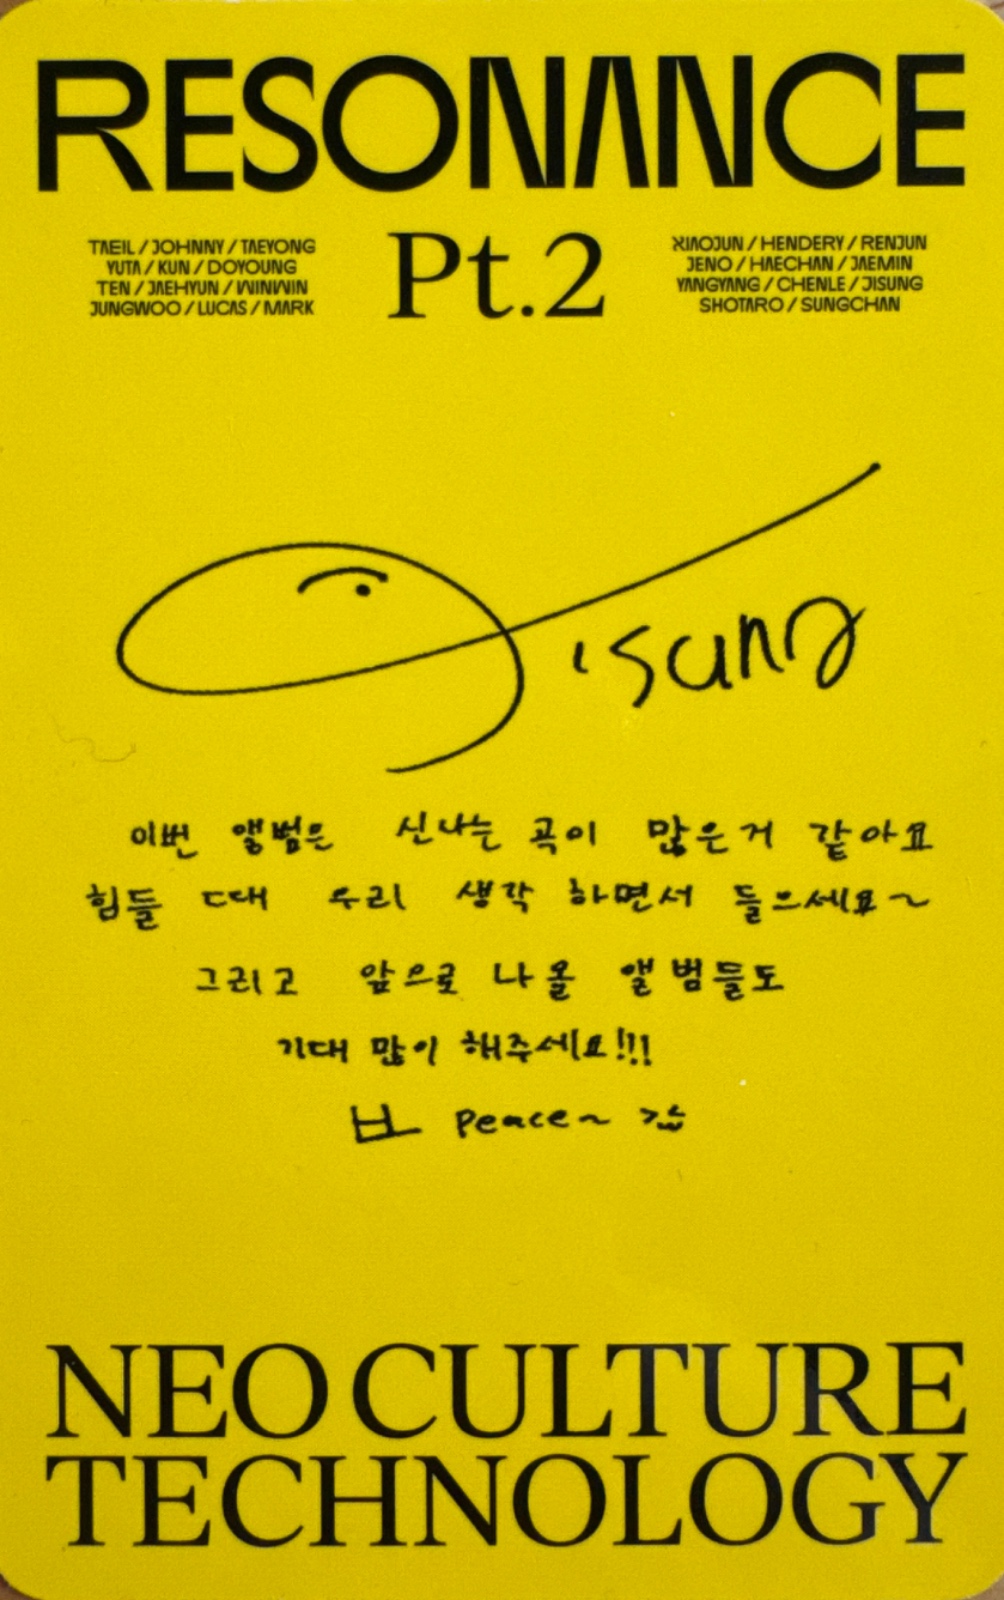 RESONANCE
Pt.2
TAEIL / JOHNNY / TAEYONG
YUTA / KUN / DOYOUNG
TEN / JAEHYUN / WINWIN
JUNGWOO / LUCAS / MARK
XIAOJUN / HENDERY / RENJUN
JENO / HAECHAN / JAEMIN
YANGYANG / CHENLE / JISUNG
SHOTARO / SUNGCHAN
Jisung
이번 앨범은 신나는 곡이 많은거 같아요
힘들 때 우리 생각 하면서 들으세요~
그리고 앞으로 나올 앨범들도
기대 많이 해주세요!!!
peace~
NEO CULTURE
TECHNOLOGY